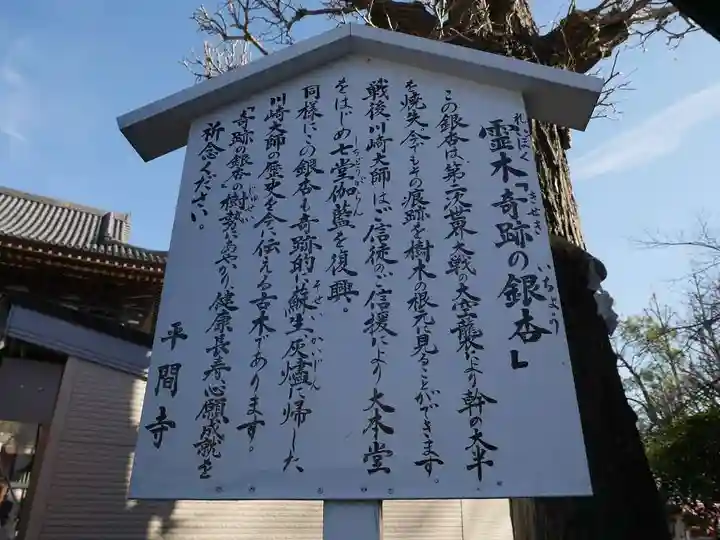 霊木「奇跡の銀杏」
れいぼく
きせき
いちょう
この銀杏は、第二次世界大戦の大空襲により幹の大半
を焼失。今でもその痕跡を樹木の根元に見ることができます。
戦後川崎大師は、ご信徒のご信援により大本堂
をはじめ七堂伽藍を復興。
しちどうがらん
同様にこの銀杏も奇跡的に蘇生、灰燼に帰した
そせい
かいじん
川崎大師の歴史を今に伝える古木であります。
「奇跡の銀杏」の樹勢にあやかり、健康長寿、心願成就を
じゅせい
祈念ください。
平間寺